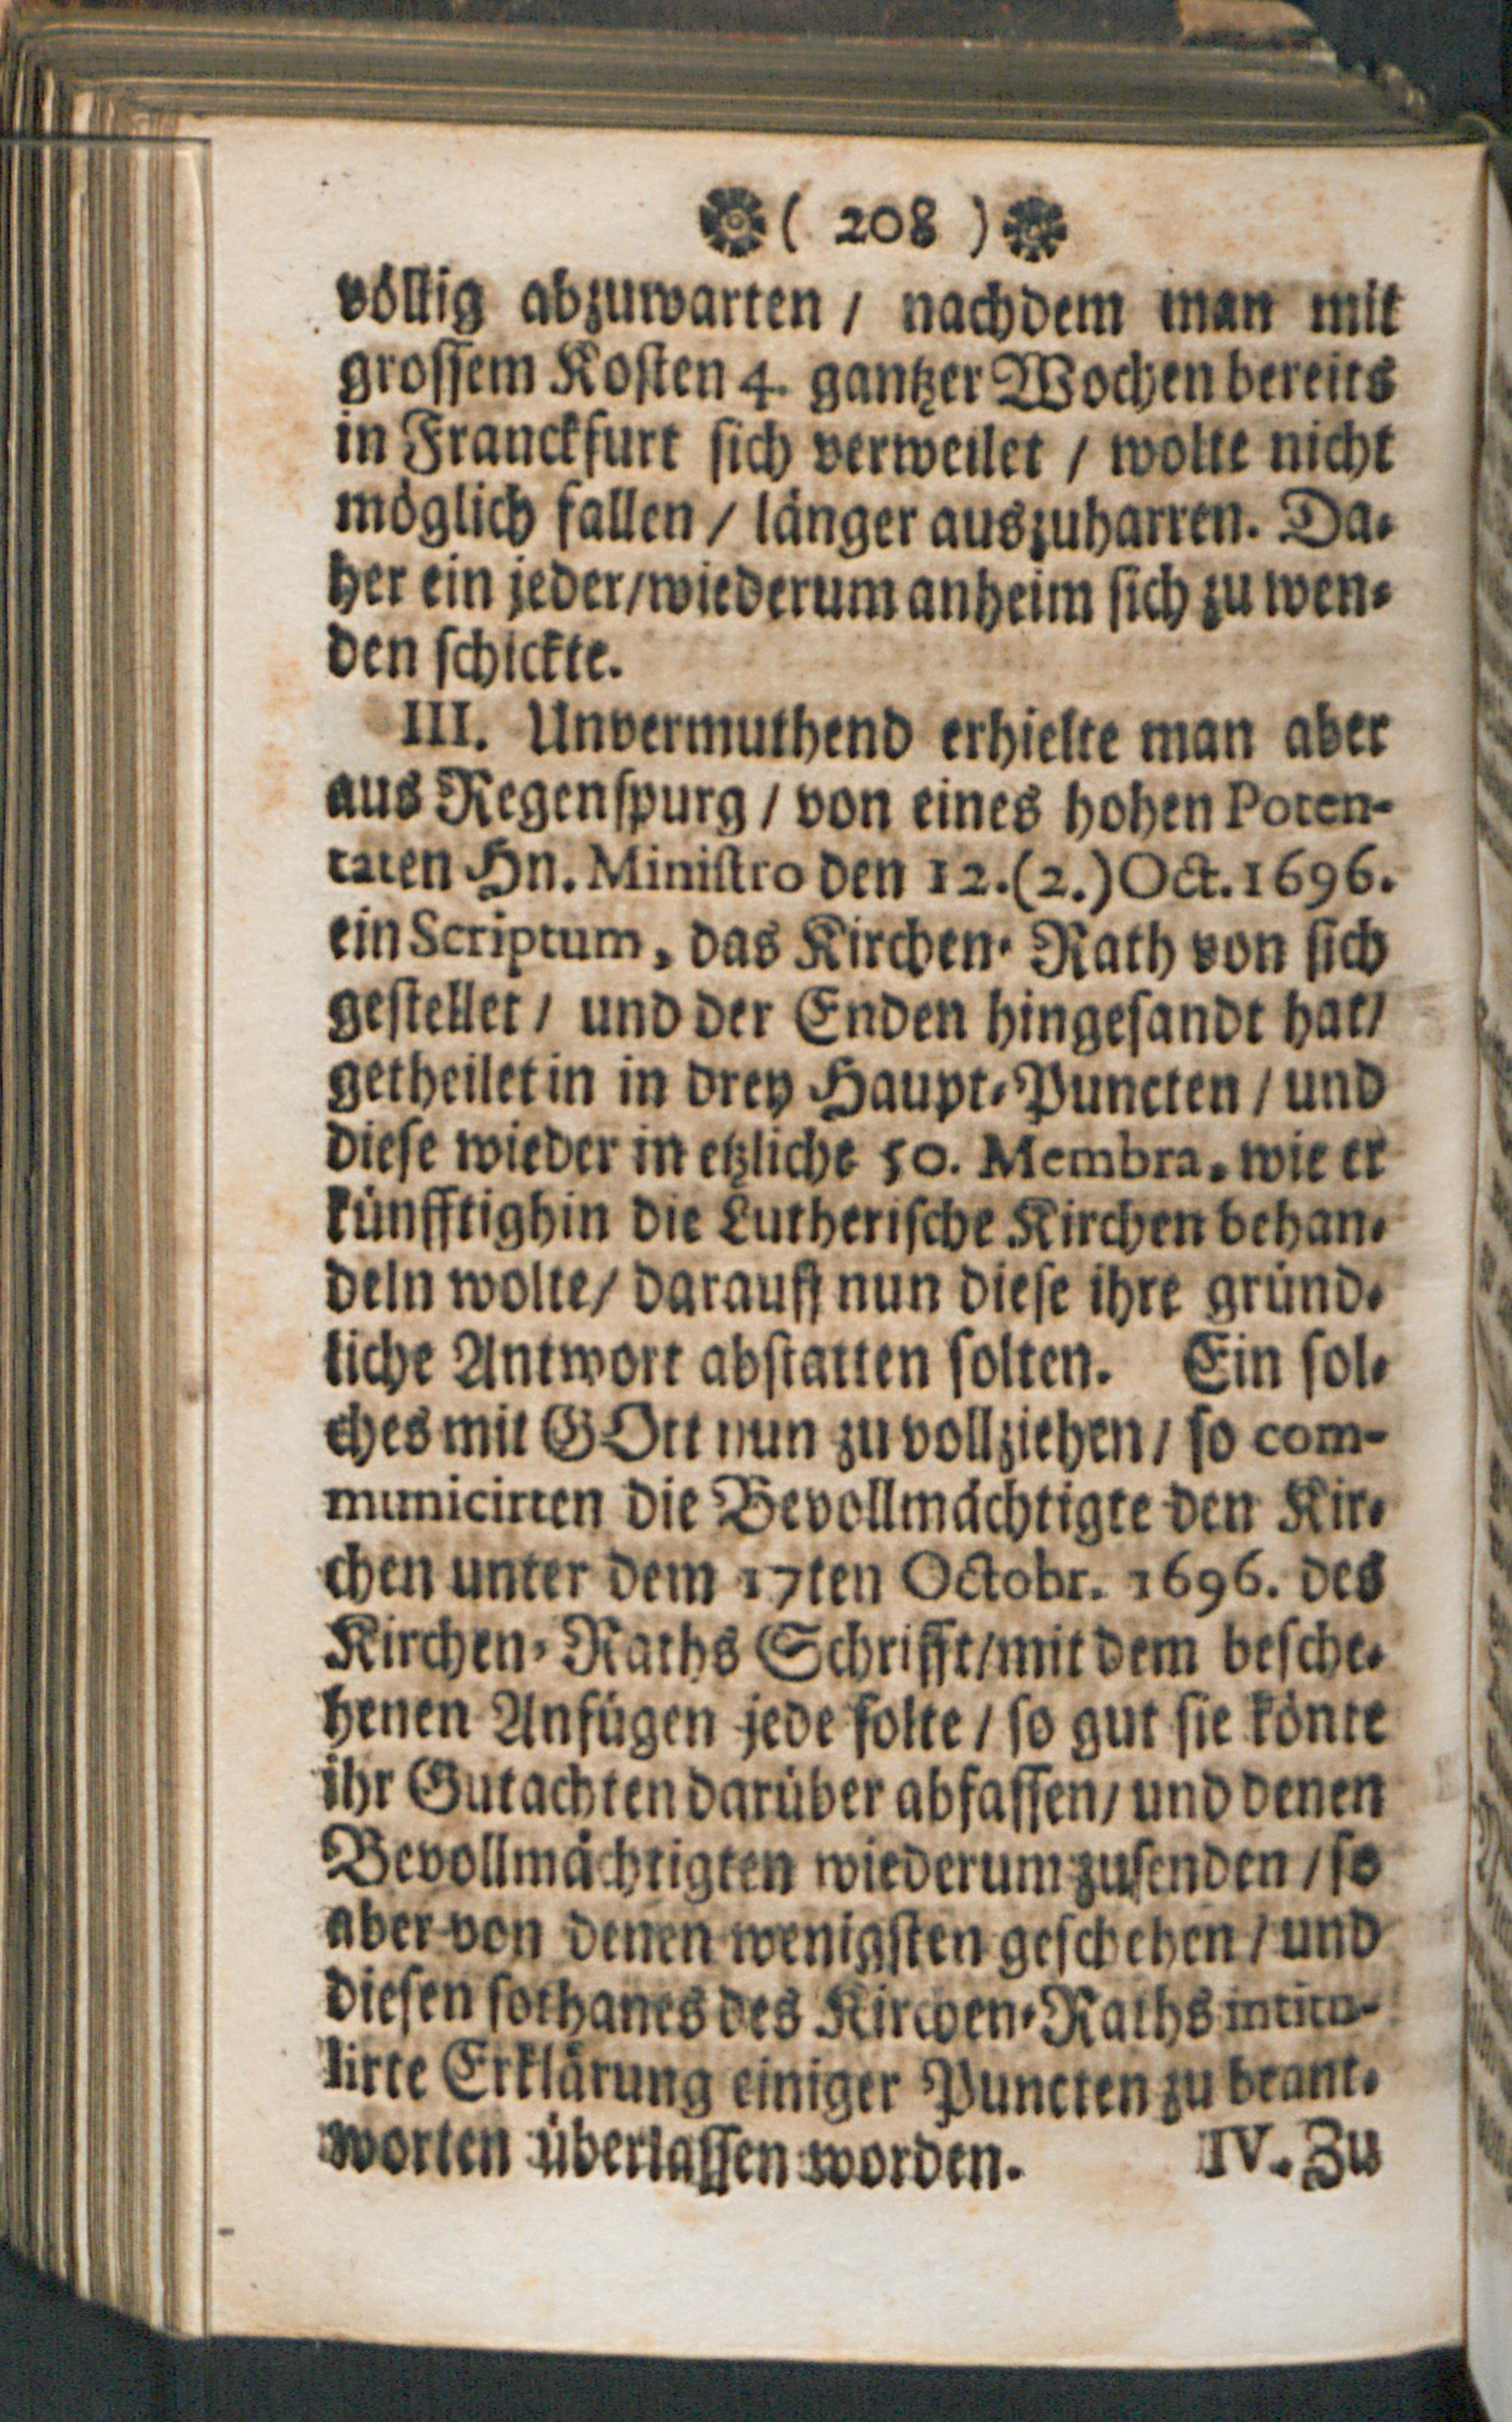 ( 208 )
völlig abzuwarten / nachdem man mit
grossem Kosten 4. gantzer Wochen bereits
in Franckfurt sich verweilet / wolte nicht
möglich fallen / länger auszuharren. Da-
her ein jeder/wiederum anheim sich zu wen-
den schickte.
III. Unvermuthend erhielte man aber
aus Regenspurg / von eines hohen Poten-
taten Hn. Ministro den 12.(2.) Oct. 1696.
ein Scriptum, das Kirchen-Rath von sich
gestellet / und der Enden hingesandt hat/
getheiletin in drey Haupt-Puncten / und
diese wieder in etzliche 50. Membra, wie er
künfftighin die Lutherische Kirchen behan-
deln wolte/ darauff nun diese ihre gründ-
liche Antwort abstatten solten. Ein sol-
ches mit GOtt nun zu vollziehen / so com-
municirten die Bevollmächtigte den Kir-
chen unter dem 17ten Octobr. 1696. des
Kirchen-Raths Schrifft/mit dem besche-
henen Anfügen jede solte / so gut sie könte
ihr Gutachten darüber abfassen/ und denen
Bevollmächtigten wiederum zusenden / so
aber von denen wenigsten geschehen / und
diesen sothanes des Kirchen-Raths intitu-
lirte Erklärung einiger Puncten zu beant-
worten überlassen worden. IV. Zu